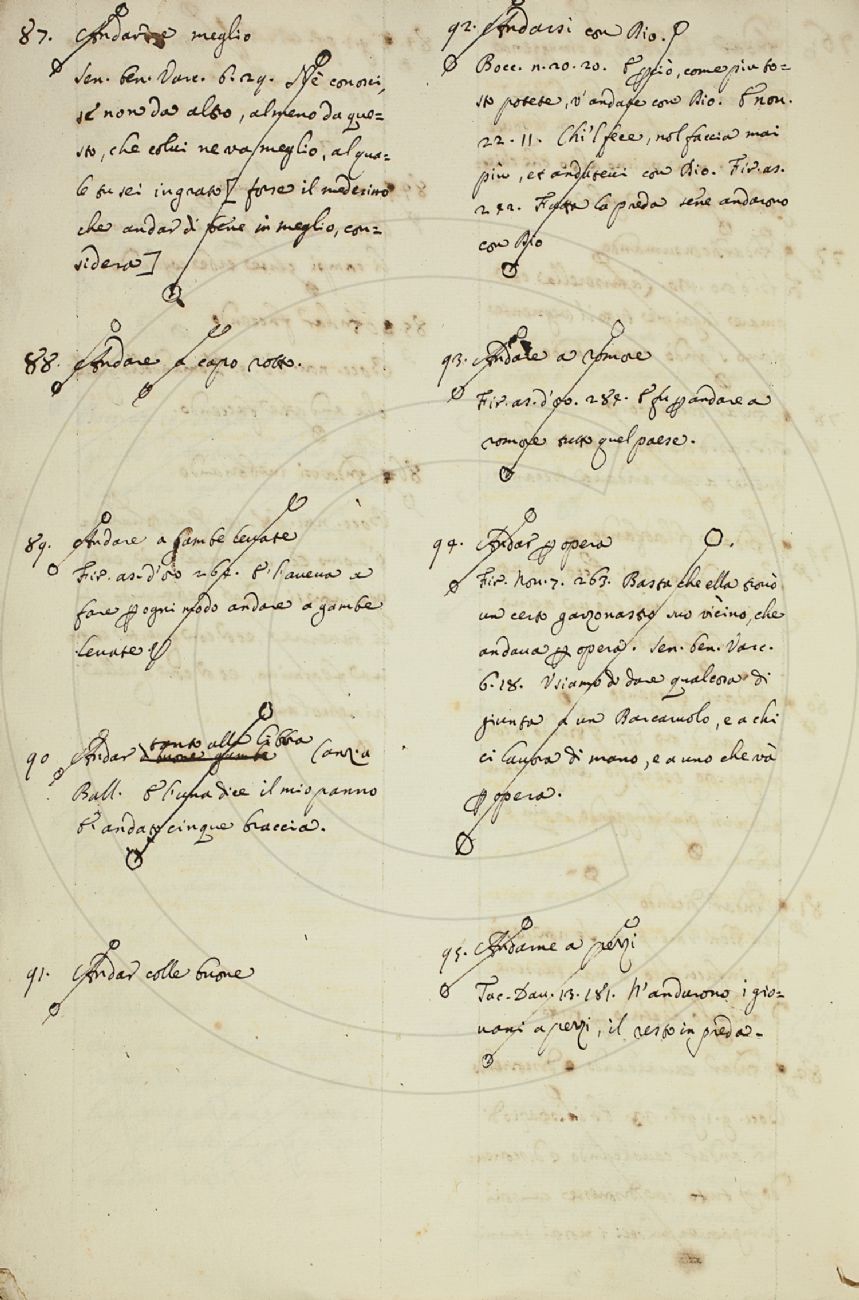 87. Andarne meglio
Sen. ben. Varc. 6. 29. Nè conosci,
se non da altro, almeno da que=
sto, che colui ne va meglio, al qua=
le tu sei ingrato [ forse il medesimo
che andar di bene in meglio, con=
sidera]
88. Andare a capo rotto.
89. Andare a gambe levate
Fir. as. d'oro 264. E l'aveva a
fare ꝑ ogni modo andare a gambe
levate
90 Andar tanto alla libbra Canzia
buone gambe
Ball. E l'una dice il mio panno
è andato cinque braccia.
91. Andar colle buone
92. Andarsi con Dio.
Bocc. n. 20. 20. E ꝑciò, come piu to=
sto potete, v'andate con Dio. E non.
22. 11. Chi'l fece, nol faccia mai
più, et andatevi con Dio. Fir. as.
242. Fatta la preda sene andarono
con Dio
93. Andare a romore
Fir. as. d'oro. 284. E fu ꝑ andare a
romore tutto quel paese.
94. Andar ꝑ opera
Fir. Nov. 7. 263. Basta che ella trovò
un certo garzonastro suo vicino, che
andava ꝑ opera. Sen. ben. Varc.
6. 18. Usiamo di dare qualcosa di
giunta a un Barcaruolo, e a chi
ci lavora di mano, e a uno che và
ꝑ opera.
95. Andarne a pezzi
Tac. Dav. 13. 181. N'andarono i gio=
vani a pezzi, il resto in preda.